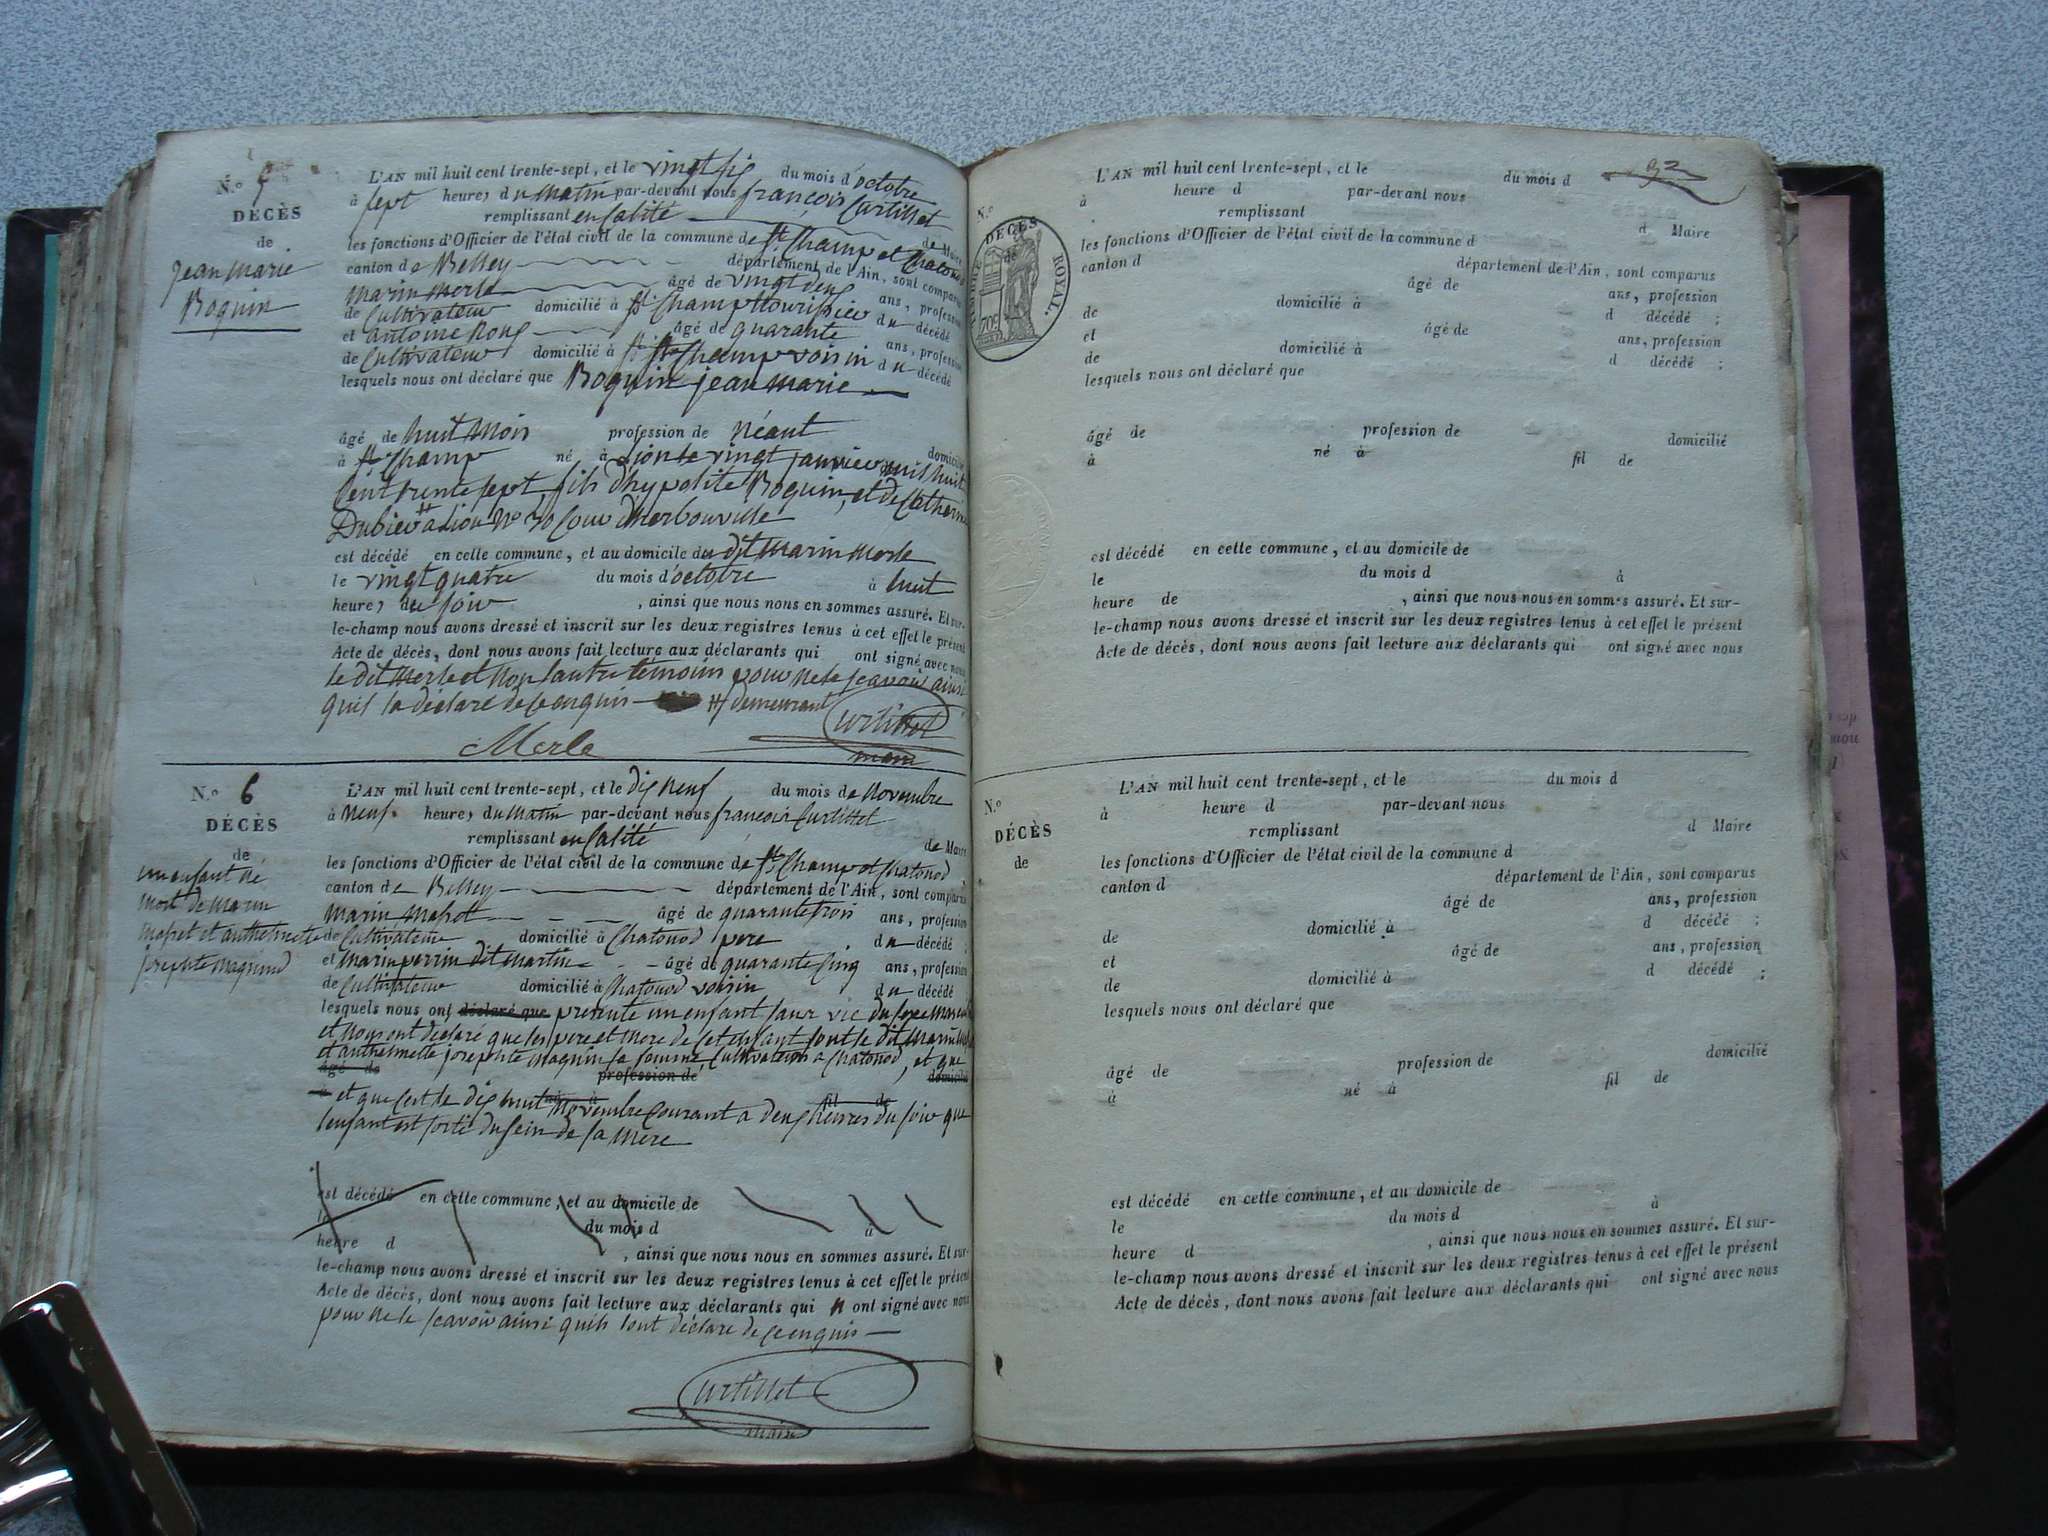 N.º
DÉCÈS
de
jean marie
Boquin
L'AN mil huit cent trente-sept, et le vingt six du mois d'octobre
à sept heures du matin par-devant nous françois Curtillet
remplissant en calité de Maire
les fonctions d'Officier de l'état civil de la commune de St Champ et Chatonod
canton de Belley département de l'Ain, sont comparus
marin merle âgé de vingt deux ans, profession
de Cultivateur domicilié à St Champ nourissier du décédé
et antoine Roux âgé de quarante ans, profession
de Cultivateur domicilié à St Champ voisin du décédé
lesquels nous ont déclaré que Boquin jean marie
âgé de huit mois profession de néant domicilié
à St Champ né à Lion le vingt janvier mil huit
Cent trente sept, fils d'hypolite Boquin, et de Catherine
Dubier # a Lion Nº 30 Cour d'herbouville
est décédé en cette commune, et au domicile du dit marin merle
le vingt quatre du mois d'octobre à huit
heures du soir , ainsi que nous nous en sommes assuré. Et sur-
le-champ nous avons dressé et inscrit sur les deux registres tenus à cet effet le présent
Acte de décès, dont nous avons fait lecture aux déclarants qui ont signé avec nous
le dit merle et non l'autre témoins pour ne le scavoir ainsi
quil la déclaré de ce enquis # demeurant
Curtillet
Merle
maire
N.º 6
DÉCÈS
de
un enfant né
mort de marin
mafret et anthelmette
josephte magnind
L'AN mil huit cent trente-sept, et le dix neuf du mois de Novembre
à Neuf heures du matin par-devant nous françois Curtillet
remplissant en Calité de Maire
les fonctions d'Officier de l'état civil de la commune de St Champ et Chatonod
canton de Belley département de l'Ain, sont comparus
marin âgé de quarante trois ans, profession
de Cultivateur domicilié à Chatonod pere du décédé ;
et marin perrin dit martin âgé de quarante Cinq ans, profession
de Cultivateur domicilié à Chatonod voisin du décédé
lesquels nous ont déclaré que presenté un enfant sans vie du sexe
et Nous ont déclaré que les pere et mere de Cet enfant sont le dit marin
et anthelmette josephte magnin sa femme, Cultivateurs a Chatonod, et que
âgé de profession de domicilié
à né à fil de
et que Cest le dix huit Novembre Courant a deux heures du soir que
lenfant est sorti du sein de sa mere
est décédé en cette commune, et au domicile de
le du mois d à
heure d , ainsi que nous nous en sommes assuré. Et sur-
le-champ nous avons dressé et inscrit sur les deux registres tenus à cet effet le présent
Acte de décès, dont nous avons fait lecture aux déclarants qui n ont signé avec nous
pour ne le scavoir ainsi quils lont déclaré de ce enquis
Curtillet
maire
92
N.º
DÉCÈS
de
TIMBRE ROYAL.
70c
L'AN mil huit cent trente-sept, et le du mois d
à heure d par-devant nous
remplissant d Maire
les fonctions d'Officier de l'état civil de la commune d
canton d département de l'Ain, sont comparus
âgé de ans, profession
de domicilié à d décédé ;
et âgé de ans, profession
de domicilié à d décédé ;
lesquels nous ont déclaré que
âgé de profession de domicilié
à né à fil de
est décédé en cette commune, et au domicile de
le du mois d à
heure de , ainsi que nous nous en sommes assuré. Et sur-
le-champ nous avons dressé et inscrit sur les deux registres tenus à cet effet le présent
Acte de décès, dont nous avons fait lecture aux déclarants qui ont signé avec nous
N.º
DÉCÈS
de
L'AN mil huit cent trente-sept, et le du mois d
à heure d par-devant nous
remplissant d Maire
les fonctions d'Officier de l'état civil de la commune d
canton d département de l'Ain, sont comparus
âgé de ans, profession
de domicilié à d décédé ;
et âgé de ans, profession
de domicilié à d décédé ;
lesquels nous ont déclaré que
âgé de profession de domicilié
à né à fil de
est décédé en cette commune, et au domicile de
le du mois d à
heure d , ainsi que nous nous en sommes assuré. Et sur-
le-champ nous avons dressé et inscrit sur les deux registres tenus à cet effet le présent
Acte de décès, dont nous avons fait lecture aux déclarants qui ont signé avec nous